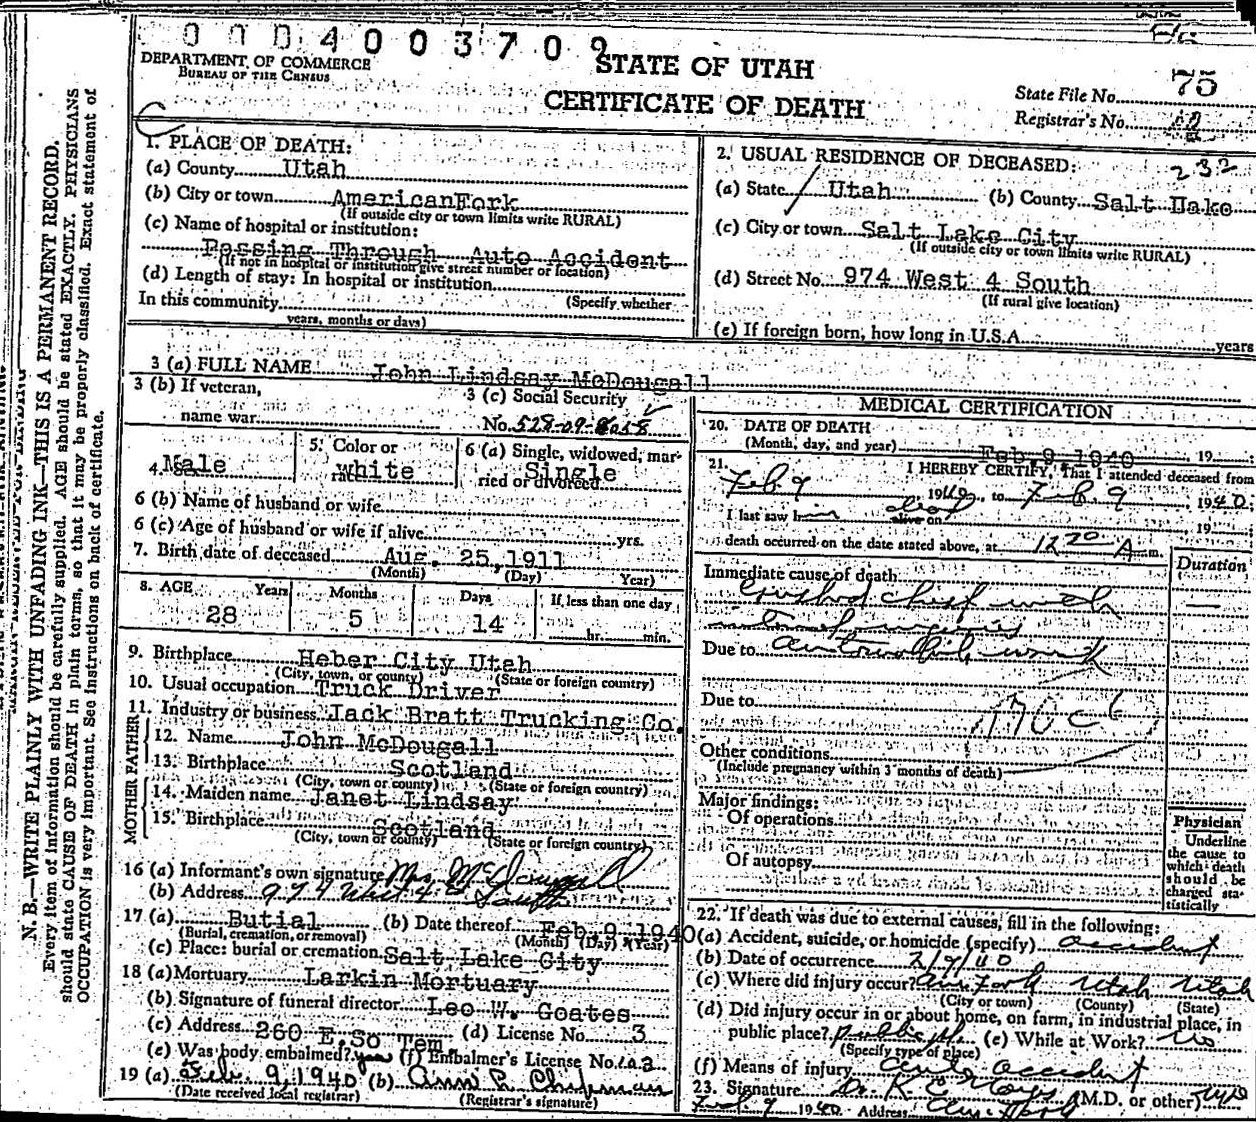 0004003709
DEPARTMENT OF COMMERCE
BUREAU OF THE CENSUS
STATE OF UTAH
CERTIFICATE OF DEATH
State File No. 75
Registrar's No.
N. B.—WRITE PLAINLY WITH UNFADING INK—THIS IS A PERMANENT RECORD.
Every item of information should be carefully supplied. AGE should be stated EXACTLY. PHYSICIANS
should state CAUSE OF DEATH in plain terms, so that it may be properly classified. Exact statement of
OCCUPATION is very important. See instructions on back of certificate.
1. PLACE OF DEATH:
(a) County Utah
(b) City or town AmericanFork
(If outside city or town limits write RURAL)
(c) Name of hospital or institution:
Passing Through Auto Accident
(If not in hospital or institution give street number or location)
(d) Length of stay: In hospital or institution
(Specify whether
In this community
years, months or days)
2. USUAL RESIDENCE OF DECEASED:
232
(a) State Utah (b) County Salt Lake
(c) City or town Salt Lake City
(If outside city or town limits write RURAL)
(d) Street No. 974 West 4 South
(If rural give location)
(e) If foreign born, how long in U.S.A. years
3 (a) FULL NAME John Lindsay McDougall
3 (b) If veteran,
name war
3 (c) Social Security
No. 528-09-8058
4. Sex Male
5. Color or
race White
6 (a) Single, widowed, mar-
ried or divorced Single
6 (b) Name of husband or wife
6 (c) Age of husband or wife if alive yrs.
7. Birth date of deceased Aug. 25, 1911
(Month) (Day) Year)
8. AGE Years Months Days If less than one day
28 5 14 hr. min.
9. Birthplace Heber City Utah
(City, town, or county) (State or foreign country)
10. Usual occupation Truck Driver
11. Industry or business Jack Bratt Trucking Co.
FATHER
12. Name John McDougall
13. Birthplace Scotland
(City, town or county) (State or foreign country)
MOTHER
14. Maiden name Janet Lindsay
15. Birthplace Scotland
(City, town or county) (State or foreign country)
16 (a) Informant's own signature Mrs. McDougall
(b) Address 974 West 4 South
17 (a) Butial (b) Date thereof Feb. 9 1940
(Burial, cremation, or removal) (Month) (Day) (Year)
(c) Place: burial or cremation Salt Lake City
18 (a) Mortuary Larkin Mortuary
(b) Signature of funeral director Leo W. Goates
(c) Address 260 E. So Tem (d) License No. 3
(e) Was body embalmed? yes (f) Embalmer's License No. 102
19 (a) Feb. 9, 1940 (b) Chipman
(Date received local registrar) (Registrar's signature)
MEDICAL CERTIFICATION
20. DATE OF DEATH
(Month, day, and year) Feb 9 1940 19
21. I HEREBY CERTIFY, That I attended deceased from
Feb 9 1940, to Feb. 9 1940.
I last saw him dead alive on 19
death occurred on the date stated above, at 12 20 A m.
Immediate cause of death Duration
Crushed chest with
internal
Due to automobile wreck
Due to
170c
Other conditions
(Include pregnancy within 3 months of death)
Major findings:
Of operations
Of autopsy
Physician
Underline
the cause to
which death
should be
charged sta-
tistically
22. If death was due to external causes, fill in the following:
(a) Accident, suicide, or homicide (specify) accident
(b) Date of occurrence 2/9/40
(c) Where did injury occur? Am. Fork Utah Utah
(City or town) (County) (State)
(d) Did injury occur in or about home, on farm, in industrial place, in
public place? public pl. (e) While at Work? No
(Specify type of place)
(f) Means of injury auto accident
23. Signature Dr. K E Noyes (M.D. or other) MD
Feb. 9 1940 Address Am. Fork